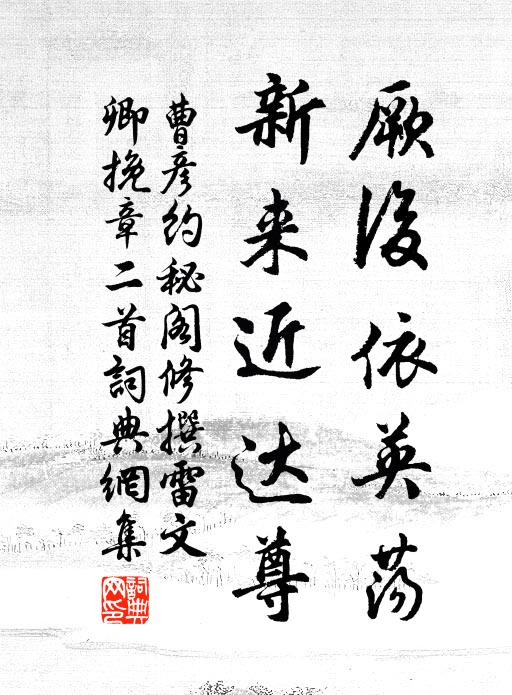 厥后依英荡
新来近达尊
曹彦约秘阁修撰雷文
卿挽章二首詞典網集
詞典网印